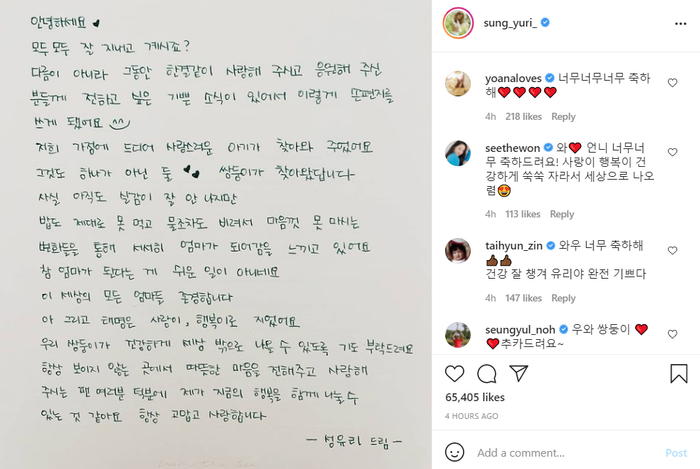 안녕하세요 ♥
모두모두 잘 지내고 계시죠?
다름이 아니라 그동안 한결같이 사랑해 주시고 응원해 주신
분들께 전하고 싶은 기쁜 소식이 있어서 이렇게 손편지를
쓰게 됐어요
저희 가정에 드디어 사랑스러운 아기가 찾아와 주었어요
그것도 하나가 아닌 둘 ♥♥ 쌍둥이가 찾아왔답니다
사실 아직도 실감이 잘 안 나지만
밥도 제대로 못 먹고 물조차도 비려서 마음껏 못 마시는
변화들을 통해 서서히 엄마가 되어감을 느끼고 있어요
참 엄마가 된다는 게 쉬운 일이 아니네요
이 세상의 모든 엄마들 존경합니다
아 그리고 태명은 사랑이, 행복이로 지었어요
우리 쌍둥이가 건강하게 세상 밖으로 나올 수 있도록 기도 부탁드려요
항상 보이지 않는 곳에서 따뜻한 마음을 전해주고 사랑해
주시는 팬 여러분 덕분에 제가 지금의 행복을 함께 나눌 수
있는 것 같아요 항상 고맙고 사랑합니다
- 성유리 드림 -
sung_yuri_
yoanaloves 너무너무너무 축하
해❤❤❤❤
4h 218 likes Reply
seethewon 와❤ 언니 너무너
무 축하드려요! 사랑이 행복이 건
강하게 쑥쑥 자라서 세상으로 나오
렴😍
4h 113 likes Reply
taihyun_zin 와우 너무 축하해
👍🏾👍🏾
건강 잘 챙겨 유리야 완전 기쁘다
4h 147 likes Reply
seungyul_noh 우와 쌍둥이 ❤
❤추카드려요~
65,405 likes
4 HOURS AGO
Add a comment... Post